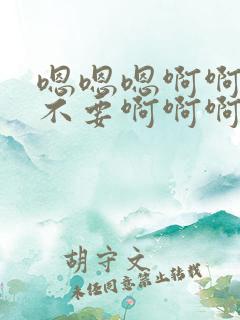 嗯嗯嗯啊啊
不要啊啊啊
胡守文
未经同意禁止转载